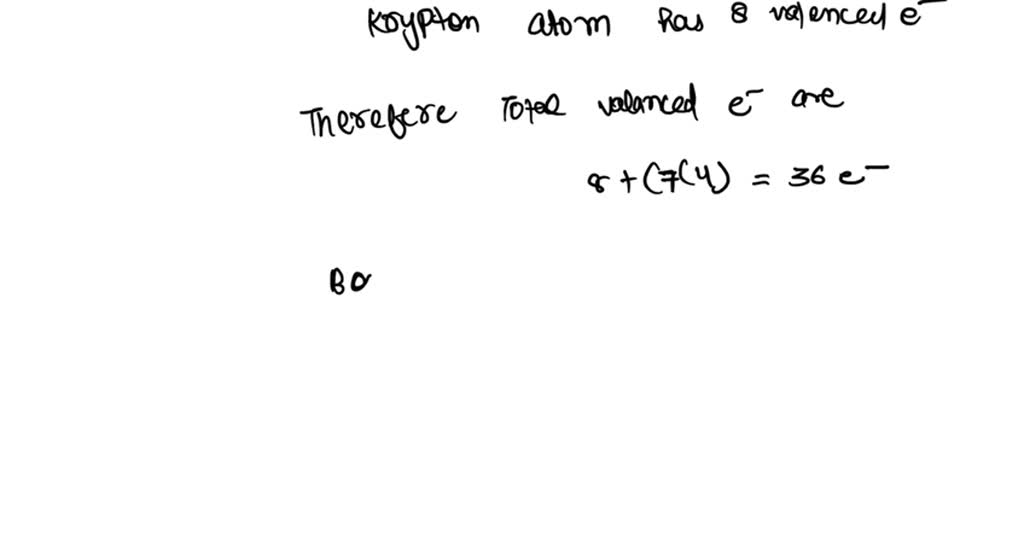 Krypton atom has 8 valenced e⁻
Therefore Total valanced e⁻ are
8 + (7(4) = 36 e⁻
BO